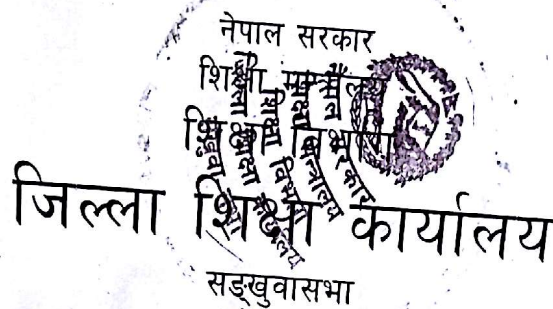 नेपाल सरकार
शिक्षा मन्त्रालय
शिक्षा विभाग
जिल्ला शिक्षा कार्यालय
सङ्खुवासभा